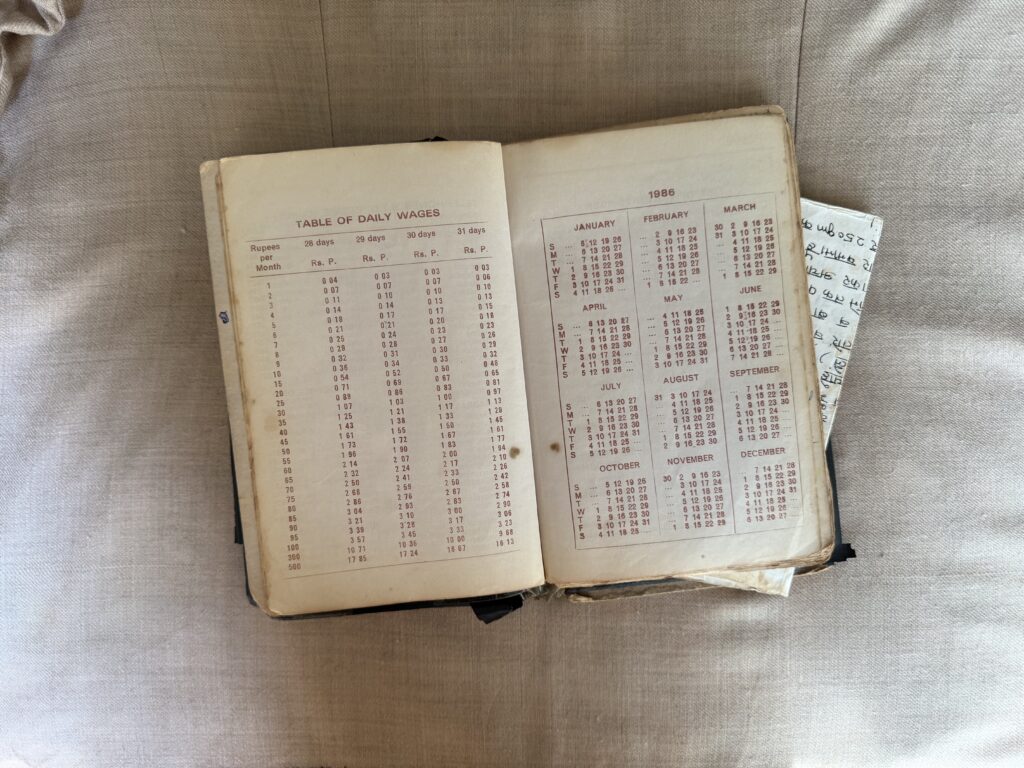 TABLE OF DAILY WAGES
Rupees per Month 28 days 29 days 30 days 31 days
Rs. P. Rs. P. Rs. P. Rs. P.
1 0 04 0 03 0 03 0 03
2 0 07 0 07 0 07 0 06
3 0 11 0 10 0 10 0 10
4 0 14 0 14 0 13 0 13
5 0 18 0 17 0 17
6 0 21 0 21 0 20
7 0 25 0 24 0 23 0 23
8 0 28 0 28 0 27 0 26
9 0 32 0 31 0 30 0 29
10 0 36 0 34 0 33 0 32
15 0 54 0 52 0 50 0 48
20 0 71 0 69 0 67 0 65
25 0 89 0 86 0 83 0 81
30 1 07 1 03 1 00 0 97
35 1 25 1 21 1 17 1 13
40 1 43 1 38 1 33
45 1 61 1 55 1 50 1 45
50 1 72 1 67 1 61
55 1 96 1 90 1 83 1 77
60 2 14 2 07 2 00 1 94
65 2 32 2 24 2 17 2 10
70 2 50 2 41 2 33 2 26
75 2 68 2 59 2 50 2 42
80 2 86 2 76 2 67 2 58
85 3 04 2 93 2 83 2 74
90 3 21 3 10 3 00 2 90
95 3 39 3 28 3 17 3 06
100 3 57 3 45 3 33 3 23
300 10 71 10 36 10 00 9 68
500 17 85 17 24 16 13
1986
JANUARY FEBRUARY MARCH
S ... 5 12 19 26 ... 2 9 16 23 30 2 9 16 23
M ... 6 13 20 27 ... 3 10 17 24 31 3 10 17 24
T ... 7 14 21 28 ... 4 11 18 25 ... 4 11 18 25
W 1 8 15 22 29 ... 5 12 19 26 ... 5 12 19 26
T 2 9 16 23 30 ... 6 13 20 27 ... 6 13 20 27
F 3 10 17 24 31 ... 7 14 21 28 ... 7 14 21 28
S 4 11 18 25 ... 1 8 15 22 ... 1 8 15 22 29
APRIL MAY JUNE
S ... 6 13 20 27 ... 4 11 18 25 1 8 15 22 29
M ... 7 14 21 28 ... 5 12 19 26 2 9 16 23 30
T 1 8 15 22 29 ... 6 13 20 27 3 10 17 24 ...
W 2 9 16 23 30 ... 7 14 21 28 4 11 18 25 ...
T 3 10 17 24 ... 1 8 15 22 29 5 12 19 26 ...
F 4 11 18 25 ... 2 9 16 23 30 6 13 20 27 ...
S 5 12 19 26 ... 3 10 17 24 31 7 14 21 28 ...
JULY AUGUST SEPTEMBER
S ... 6 13 20 27 31 3 10 17 24 ... 7 14 21 28
M ... 7 14 21 28 ... 4 11 18 25 1 8 15 22 29
T 1 8 15 22 29 ... 5 12 19 26 2 9 16 23 30
W 2 9 16 23 30 ... 6 13 20 27 3 10 17 24 ...
T 3 10 17 24 31 ... 7 14 21 28 4 11 18 25 ...
F 4 11 18 25 ... 1 8 15 22 29 5 12 19 26 ...
S 5 12 19 26 ... 2 9 16 23 30 6 13 20 27 ...
OCTOBER NOVEMBER DECEMBER
S ... 5 12 19 26 30 2 9 16 23 ... 7 14 21 28
M ... 6 13 20 27 ... 3 10 17 24 1 8 15 22 29
T ... 7 14 21 28 ... 4 11 18 25 2 9 16 23 30
W 1 8 15 22 29 ... 5 12 19 26 3 10 17 24 31
T 2 9 16 23 30 ... 6 13 20 27 4 11 18 25 ...
F 3 10 17 24 31 ... 7 14 21 28 5 12 19 26 ...
S 4 11 18 25 ... 1 8 15 22 29 6 13 20 27 ...
250 gm